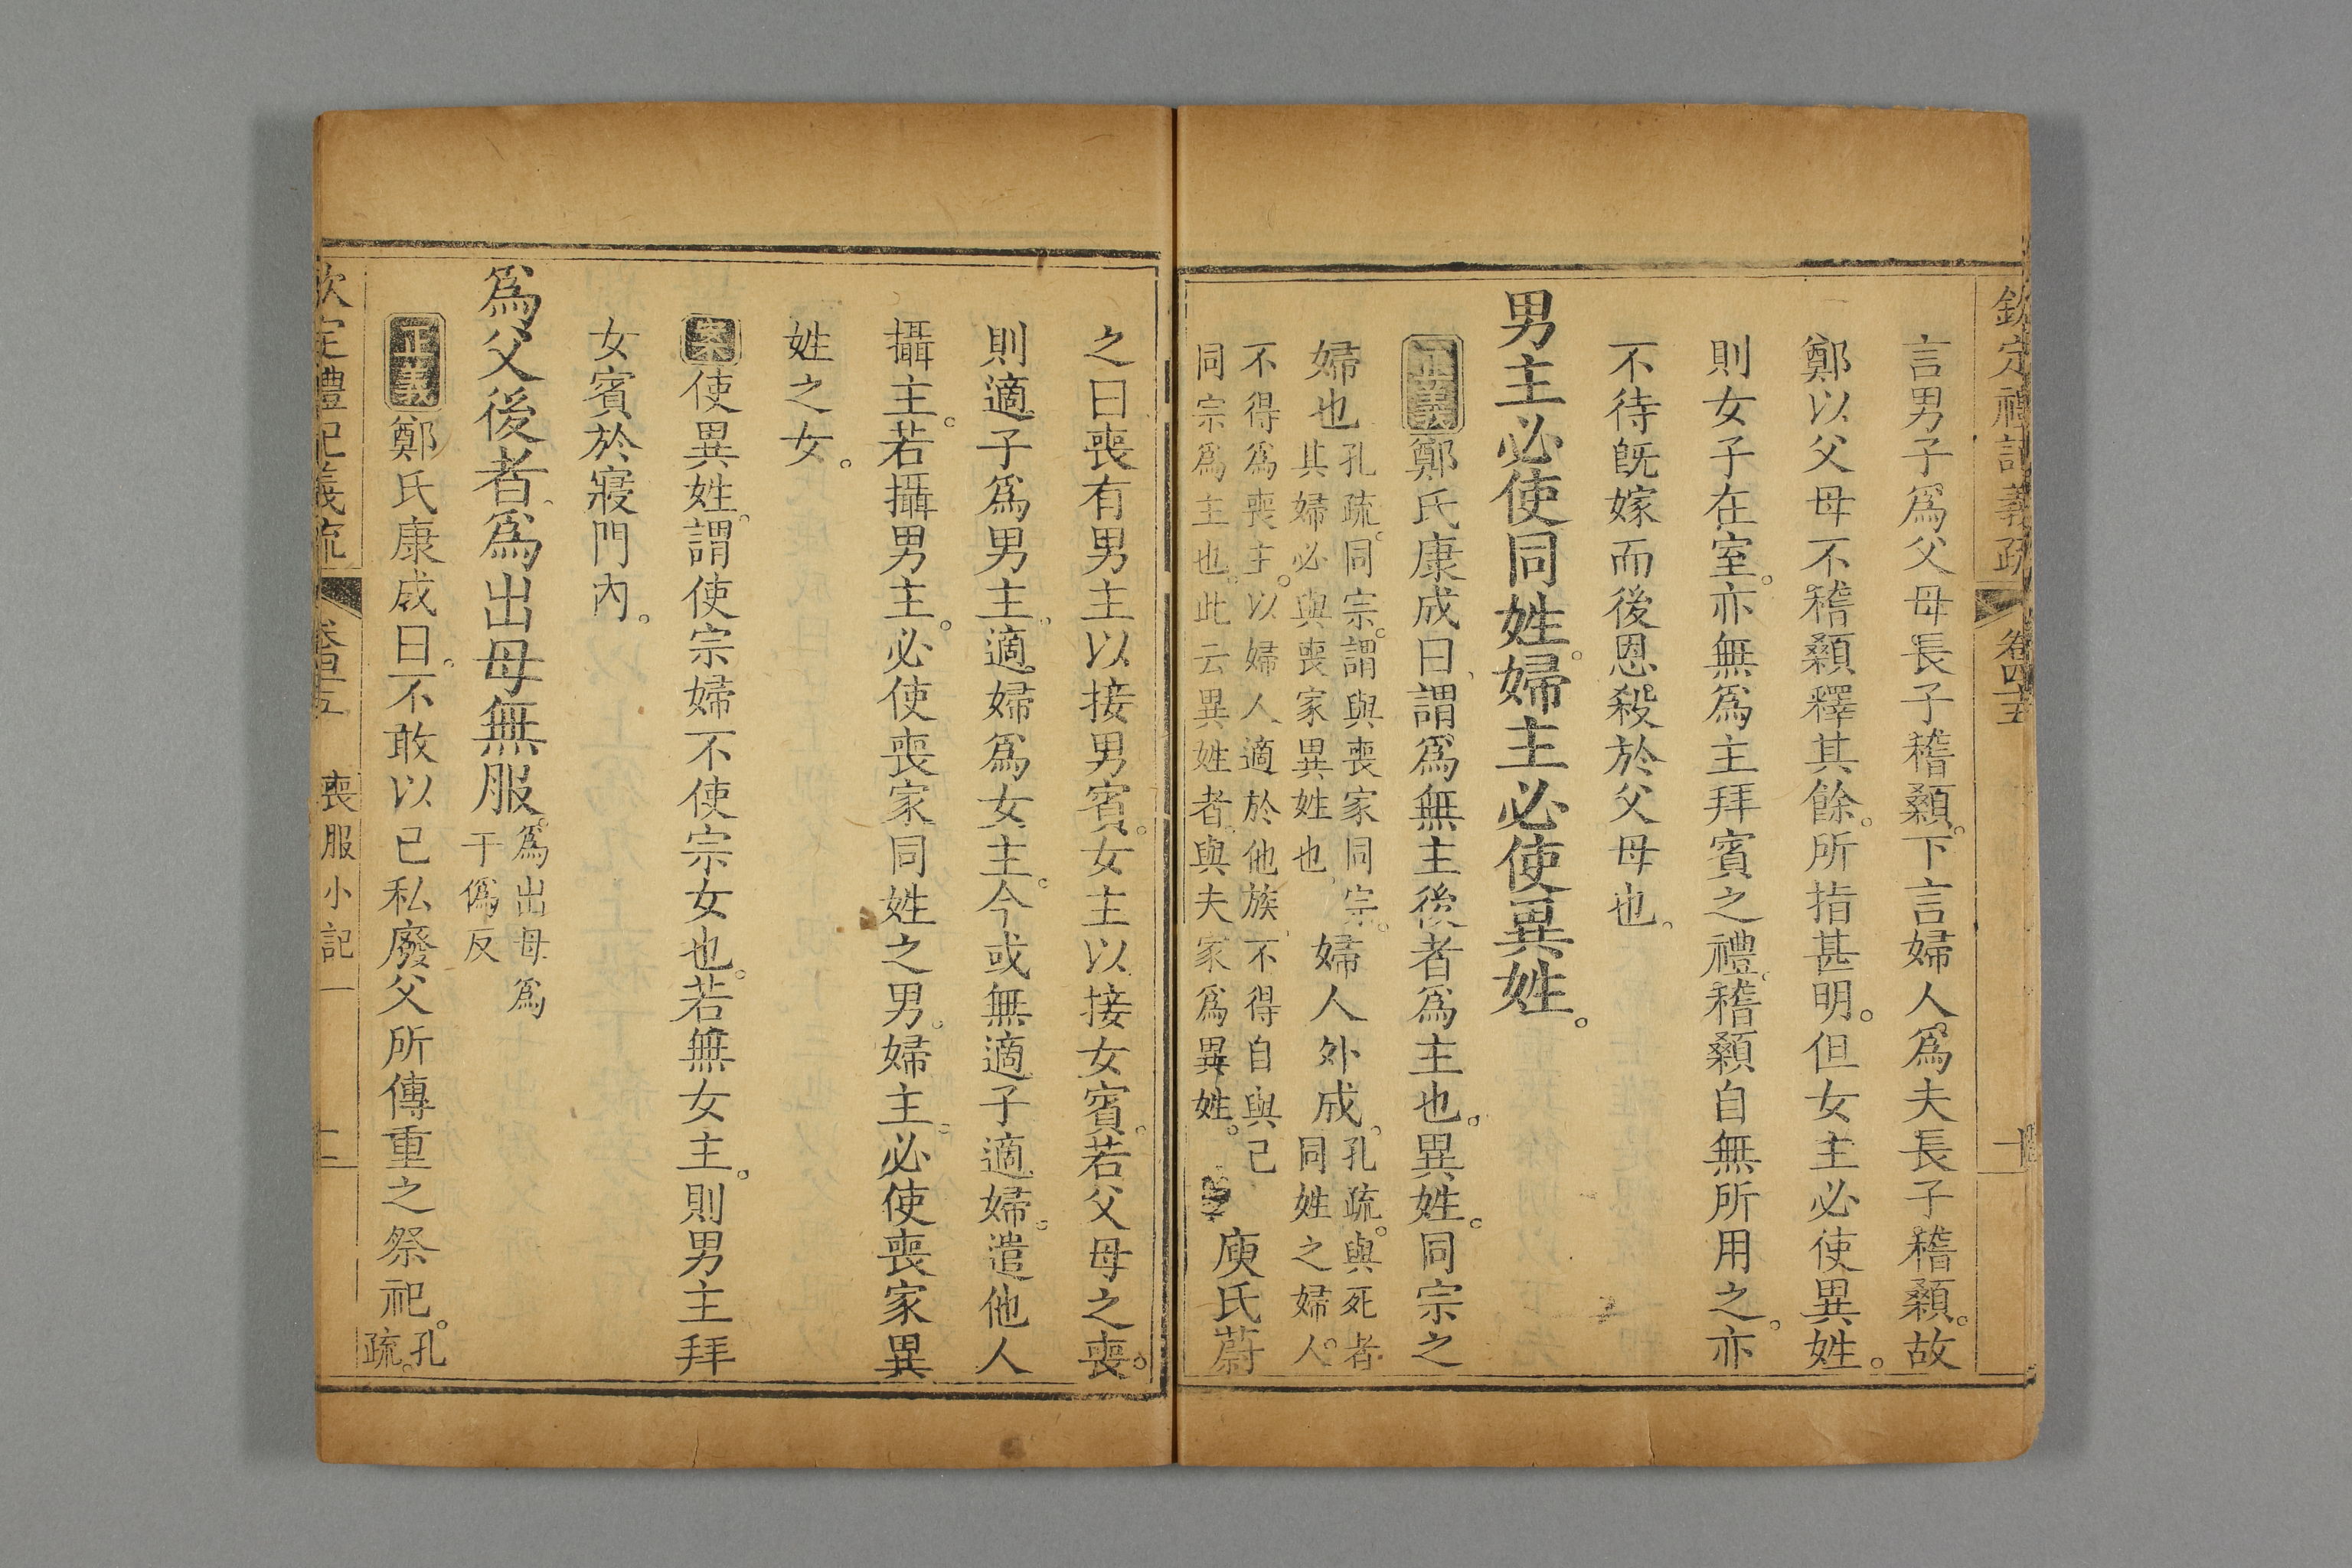 欽定禮記義疏 卷四十五 十
言男子爲父母長子稽顙。下言婦人爲夫長子稽顙。故
鄭以父母不稽顙釋其餘。所指甚明。但女主必使異姓。
則女子在室。亦無爲主拜賓之禮。稽顙自無所用之。亦
不待旣嫁而後恩殺於父母也。
男主必使同姓。婦主必使異姓。
正義鄭氏康成曰、謂爲無主後者爲主也。異姓。同宗之
婦也孔疏。同宗。謂與喪家同宗。其婦必與喪家異姓也。婦人外成。孔疏。與死者同姓之婦人。
不得爲喪主。以婦人適於他族、不得自與己同宗爲主也。此云異姓者。與夫家爲異姓。庾氏蔚
之曰喪有男主以接男賓。女主以接女賓。若父母之喪。
則適子爲男主。適婦爲女主。今或無適子適婦。遣他人
攝主。若攝男主。必使喪家同姓之男。婦主。必使喪家異
姓之女。
案使異姓。謂使宗婦不使宗女也。若無女主。則男主拜
女賓於寢門內。
爲父後者、爲出母無服。爲出母爲于僞反
正義鄭氏康成曰。不敢以己私廢父所傳重之祭祀。孔疏。
欽定禮記義疏 卷四十五 喪服小記一 十一